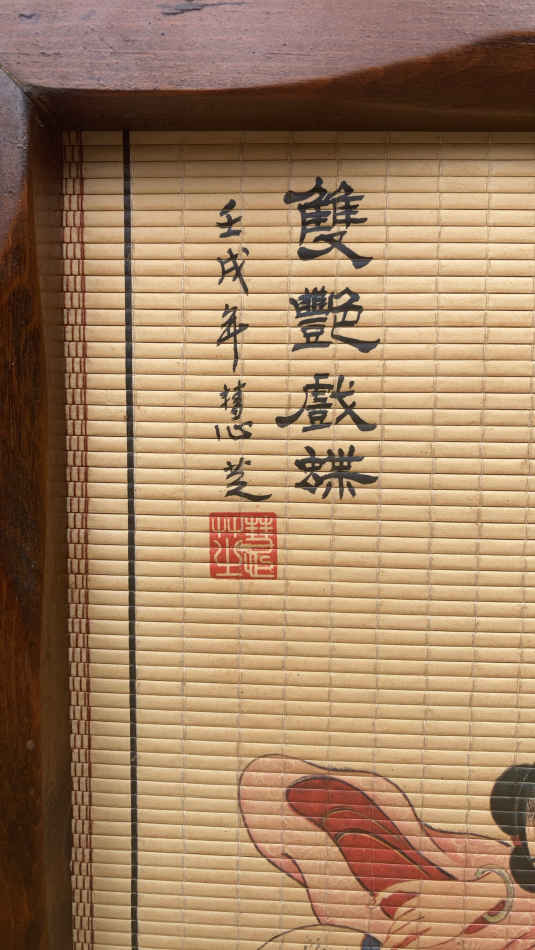 雙艷戲蝶
壬戌年慧芝
慧芝